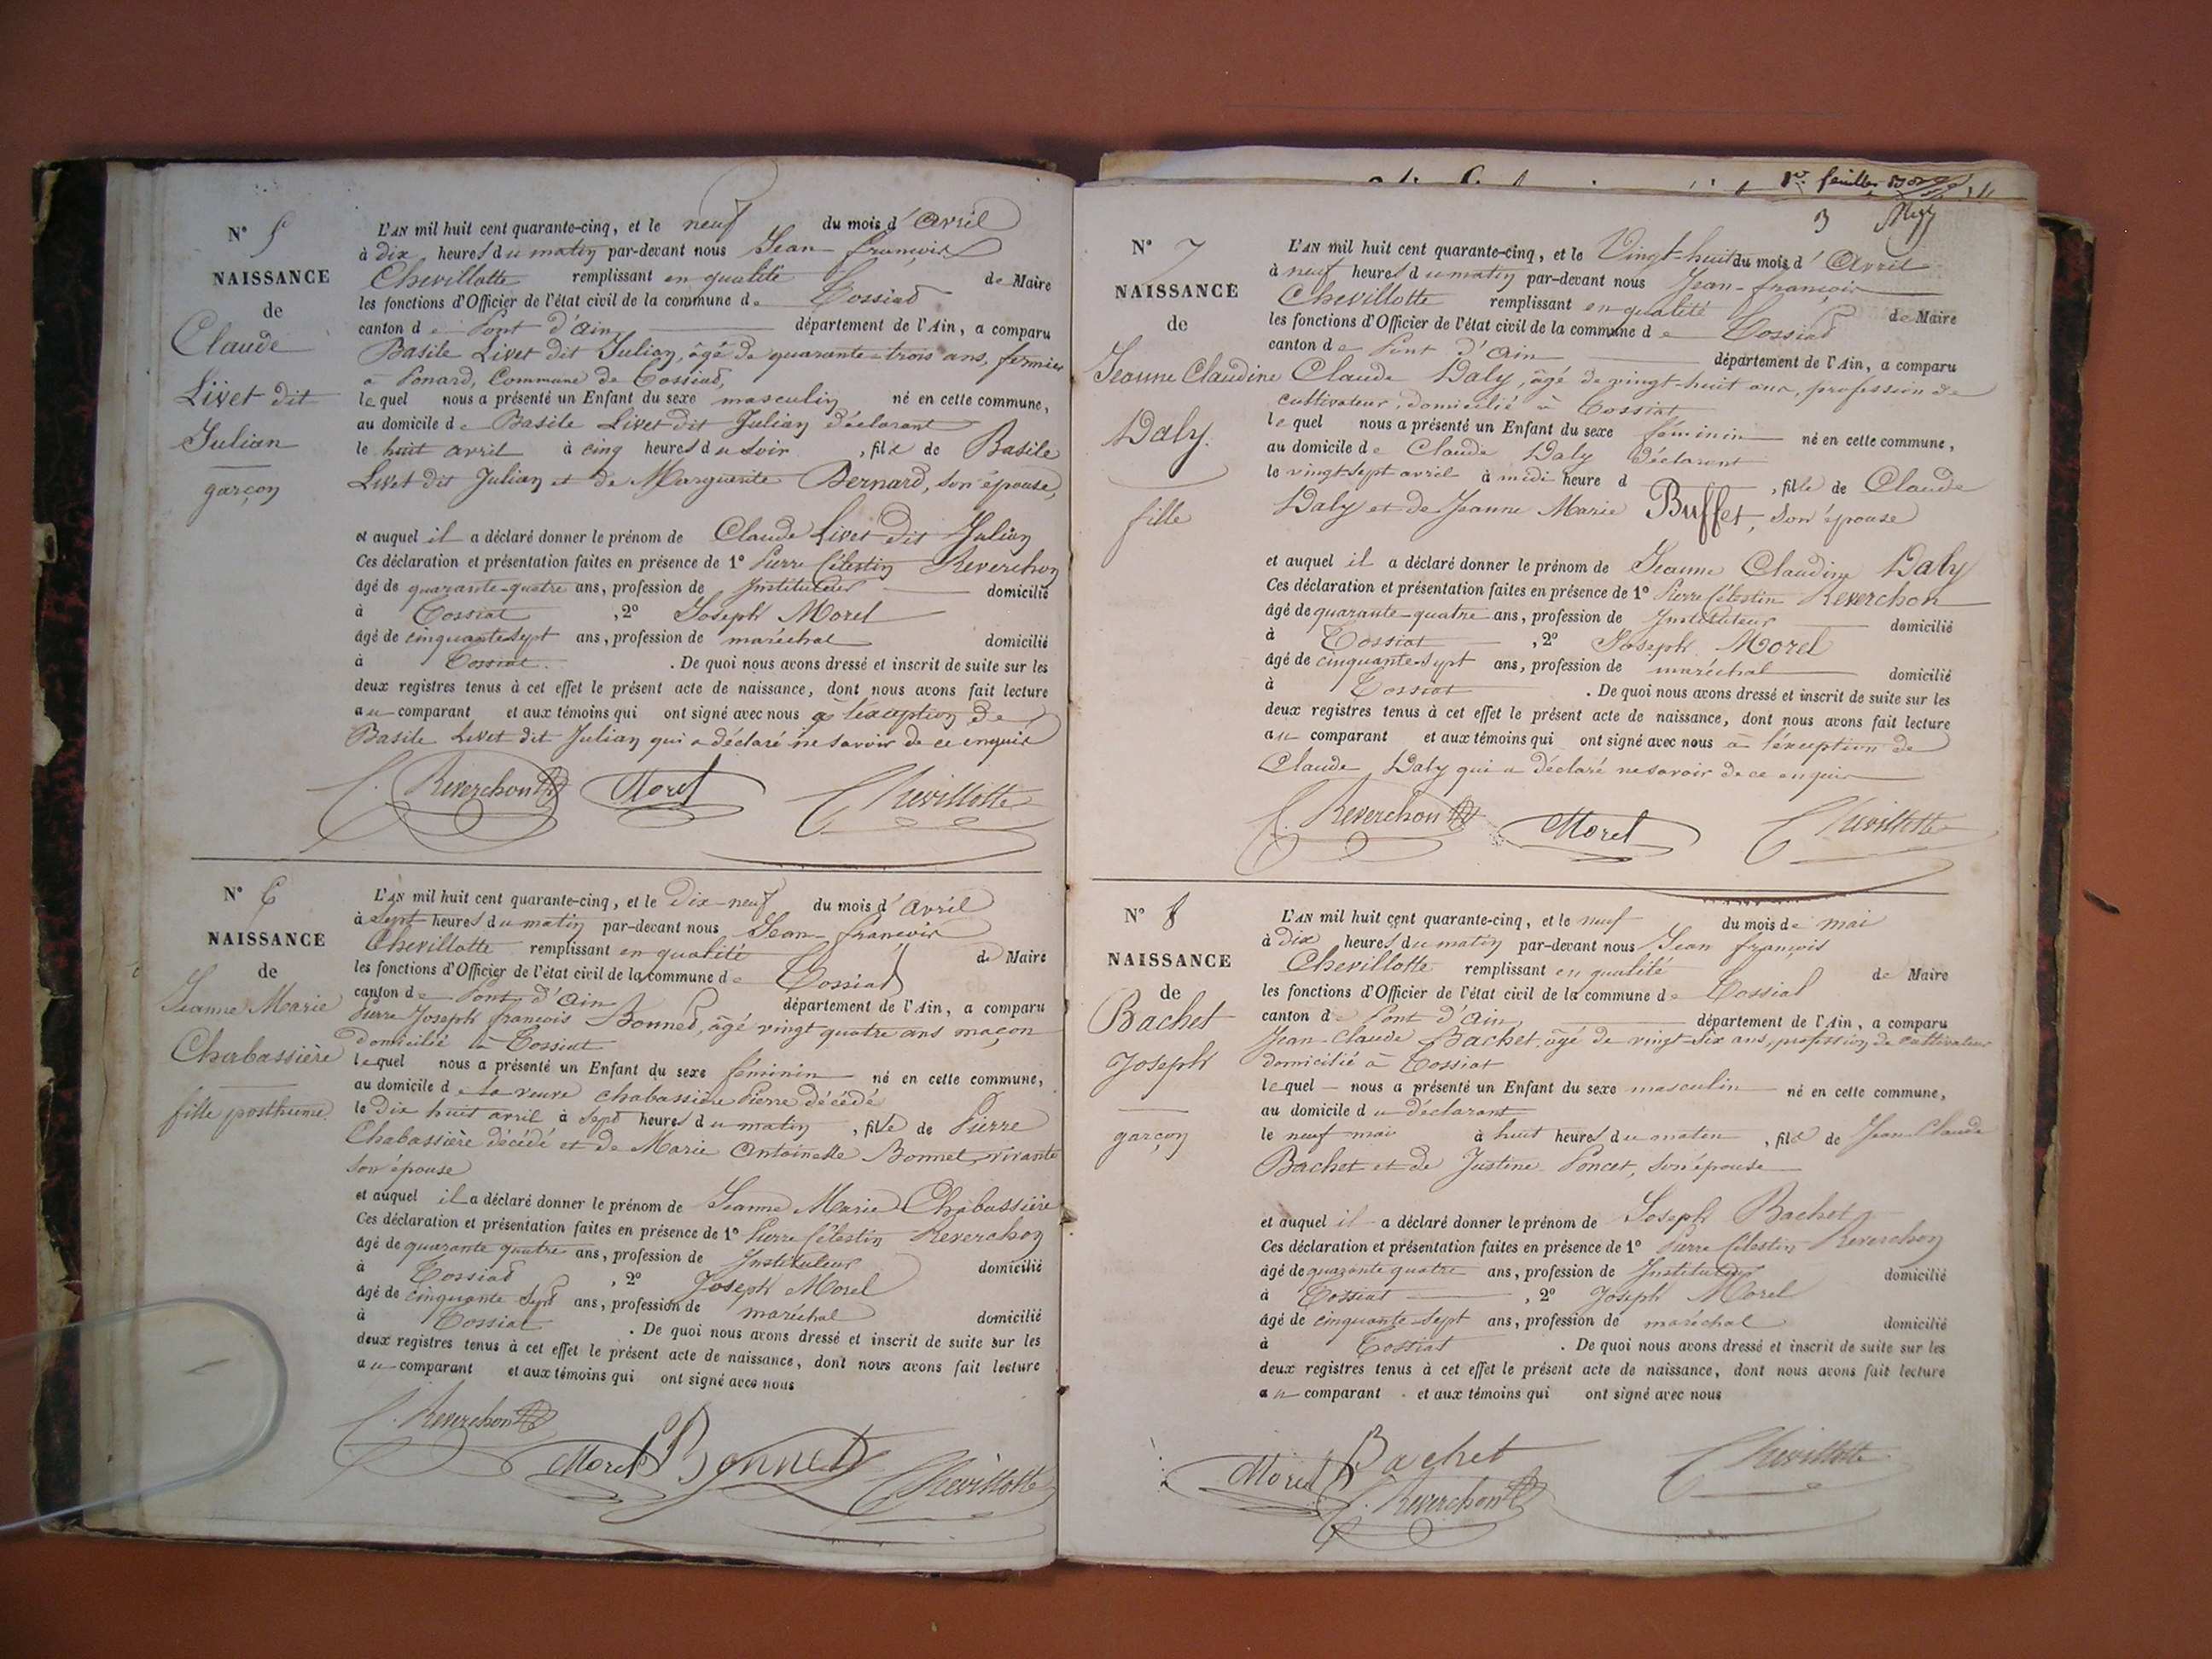 N° 5
NAISSANCE
de
Claude
Livet dit
Julian
garçon
L'AN mil huit cent quarante-cinq, et le neuf du mois d'Avril
à dix heures du matin par-devant nous Jean-françois
Chevillotte remplissant en qualité de Maire
les fonctions d'Officier de l'état civil de la commune de Tossiat
canton de Pont d'Ain département de l'Ain, a comparu
Basile Livet dit Julian, âgé de quarante-trois ans, fermier
à Ponard, Commune de Tossiat,
lequel nous a présenté un Enfant du sexe masculin né en cette commune,
au domicile de Basile Livet dit Julian déclarant
le huit avril à cinq heures du soir, fils de Basile
Livet dit Julian et de Marguerite Bernard, son épouse,
et auquel il a déclaré donner le prénom de Claude Livet dit Julian
Ces déclaration et présentation faites en présence de 1° Pierre Célestin Reverchon
âgé de quarante-quatre ans, profession de Instituteur domicilié
à Tossiat, 2° Joseph Morel
âgé de cinquante-sept ans, profession de maréchal domicilié
à Tossiat. De quoi nous avons dressé et inscrit de suite sur les
deux registres tenus à cet effet le présent acte de naissance, dont nous avons fait lecture
au comparant et aux témoins qui ont signé avec nous à l'exception de
Basile Livet dit Julian qui a déclaré ne savoir de ce enquis
C. Reverchon Morel Chevillotte
N° 6
NAISSANCE
de
Jeanne Marie
Chabassière
fille posthume
L'AN mil huit cent quarante-cinq, et le Dix-neuf du mois d'Avril
à Sept heures du matin par-devant nous Jean-françois
Chevillotte remplissant en qualité de Maire
les fonctions d'Officier de l'état civil de la commune de Tossiat
canton de Pont d'Ain département de l'Ain, a comparu
Pierre Joseph françois Bonnet, âgé vingt quatre ans maçon
domicilié à Tossiat
lequel nous a présenté un Enfant du sexe féminin né en cette commune,
au domicile de la veuve chabassière Pierre décédé
le Dix huit avril à Sept heures du matin, fille de Pierre
Chabassière décédé et de Marie Antoinette Bonnet, vivante
son épouse
et auquel il a déclaré donner le prénom de Jeanne Marie Chabassière
Ces déclaration et présentation faites en présence de 1° Pierre Célestin Reverchon
âgé de quarante quatre ans, profession de Instituteur domicilié
à Tossiat, 2° Joseph Morel
âgé de cinquante Sept ans, profession de maréchal domicilié
à Tossiat. De quoi nous avons dressé et inscrit de suite sur les
deux registres tenus à cet effet le présent acte de naissance, dont nous avons fait lecture
au comparant et aux témoins qui ont signé avec nous
C. Reverchon
Morel Bonnet Chevillotte
1er feuillet
3
N° 7
NAISSANCE
de
Jeanne Claudine
Daly.
fille
L'AN mil huit cent quarante-cinq, et le Vingt-huit du mois d'Avril
à neuf heures du matin par-devant nous Jean-françois
Chevillotte remplissant en qualité de Maire
les fonctions d'Officier de l'état civil de la commune de Tossiat
canton de Pont d'Ain département de l'Ain, a comparu
Claude Daly, âgé de vingt-huit ans, profession de
cultivateur, domicilié à Tossiat
lequel nous a présenté un Enfant du sexe féminin né en cette commune,
au domicile de Claude Daly déclarant
le vingt-sept avril à midi heure d , fille de Claude
Daly et de Jeanne Marie Buffet, son épouse
et auquel il a déclaré donner le prénom de Jeanne Claudine Daly
Ces déclaration et présentation faites en présence de 1° Pierre Célestin Reverchon
âgé de quarante-quatre ans, profession de Instituteur domicilié
à Tossiat, 2° Joseph Morel
âgé de cinquante-sept ans, profession de maréchal domicilié
à Tossiat. De quoi nous avons dressé et inscrit de suite sur les
deux registres tenus à cet effet le présent acte de naissance, dont nous avons fait lecture
au comparant et aux témoins qui ont signé avec nous à l'exception de
Claude Daly qui a déclaré ne savoir de ce enquis
C. Reverchon Morel Chevillotte
N° 8
NAISSANCE
de
Bachet
Joseph
garçon
L'AN mil huit cent quarante-cinq, et le neuf du mois de mai
à Dix heures du matin par-devant nous Jean françois
Chevillotte remplissant en qualité de Maire
les fonctions d'Officier de l'état civil de la commune de Tossiat
canton de Pont d'Ain département de l'Ain, a comparu
Jean-Claude Bachet, âgé de vingt-six ans, profession de cultivateur
domicilié à Tossiat
lequel nous a présenté un Enfant du sexe masculin né en cette commune,
au domicile du déclarant
le neuf mai à huit heures du matin, fils de Jean Claude
Bachet et de Justine Poncet, son épouse
et auquel il a déclaré donner le prénom de Joseph Bachet
Ces déclaration et présentation faites en présence de 1° Pierre Célestin Reverchon
âgé de quarante quatre ans, profession de Instituteur domicilié
à Tossiat, 2° Joseph Morel
âgé de cinquante-sept ans, profession de maréchal domicilié
à Tossiat. De quoi nous avons dressé et inscrit de suite sur les
deux registres tenus à cet effet le présent acte de naissance, dont nous avons fait lecture
au comparant et aux témoins qui ont signé avec nous
Morel Bachet Chevillotte
C. Reverchon